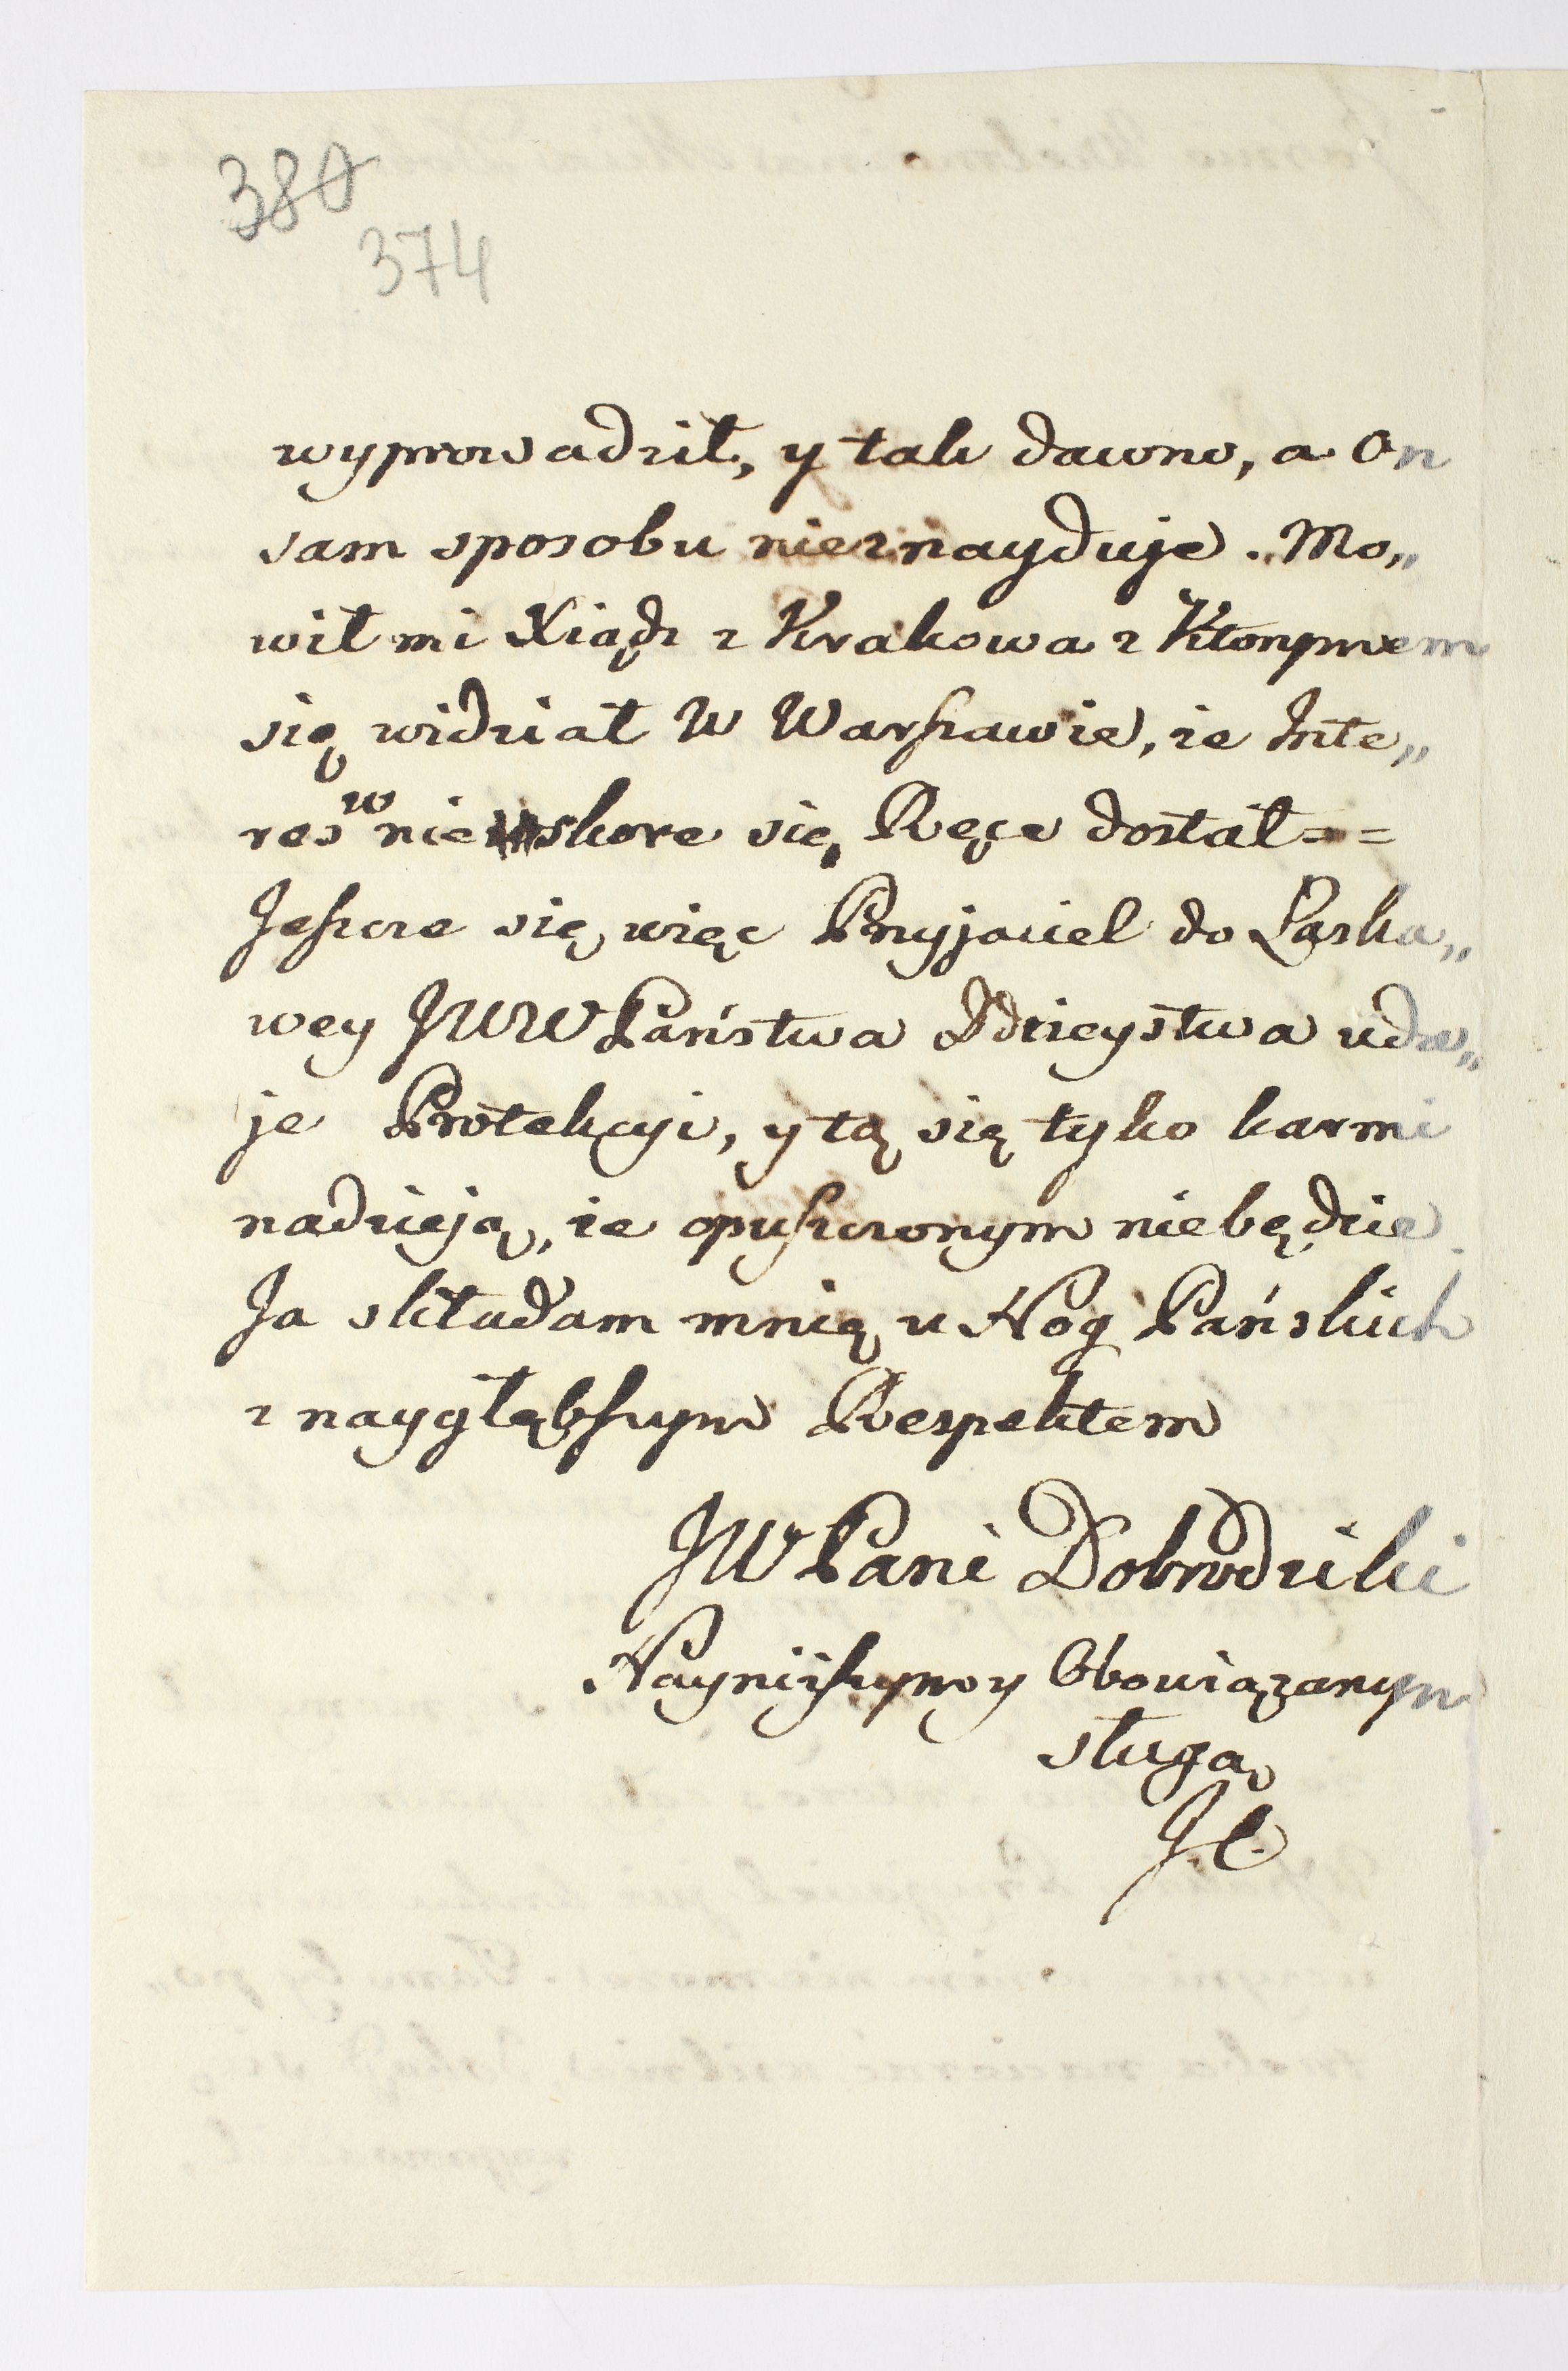 380
374
wyprowadził, y tak dawno, a On
sam sposobu nieznayduje. Mo„
wił mi Xiądz z Krakowa z Ktorym em
się widział W Warszawie, że Inte„
res w nieskore się Ręce dostał =
Jeszcze się więc Przyjaciel do Łaska„
wey JWW Państwa Ddzieystwa uda„
je Protekcyi, y tą się tyko karmi
nadzieją, że opuszczonym niebędzie
Ja składam mnię u Nog Pańskich
z naygłębszym Respektem
JW Pani Dobrodziki
Nayniższym y Obowiązanym
sługą
J.C.